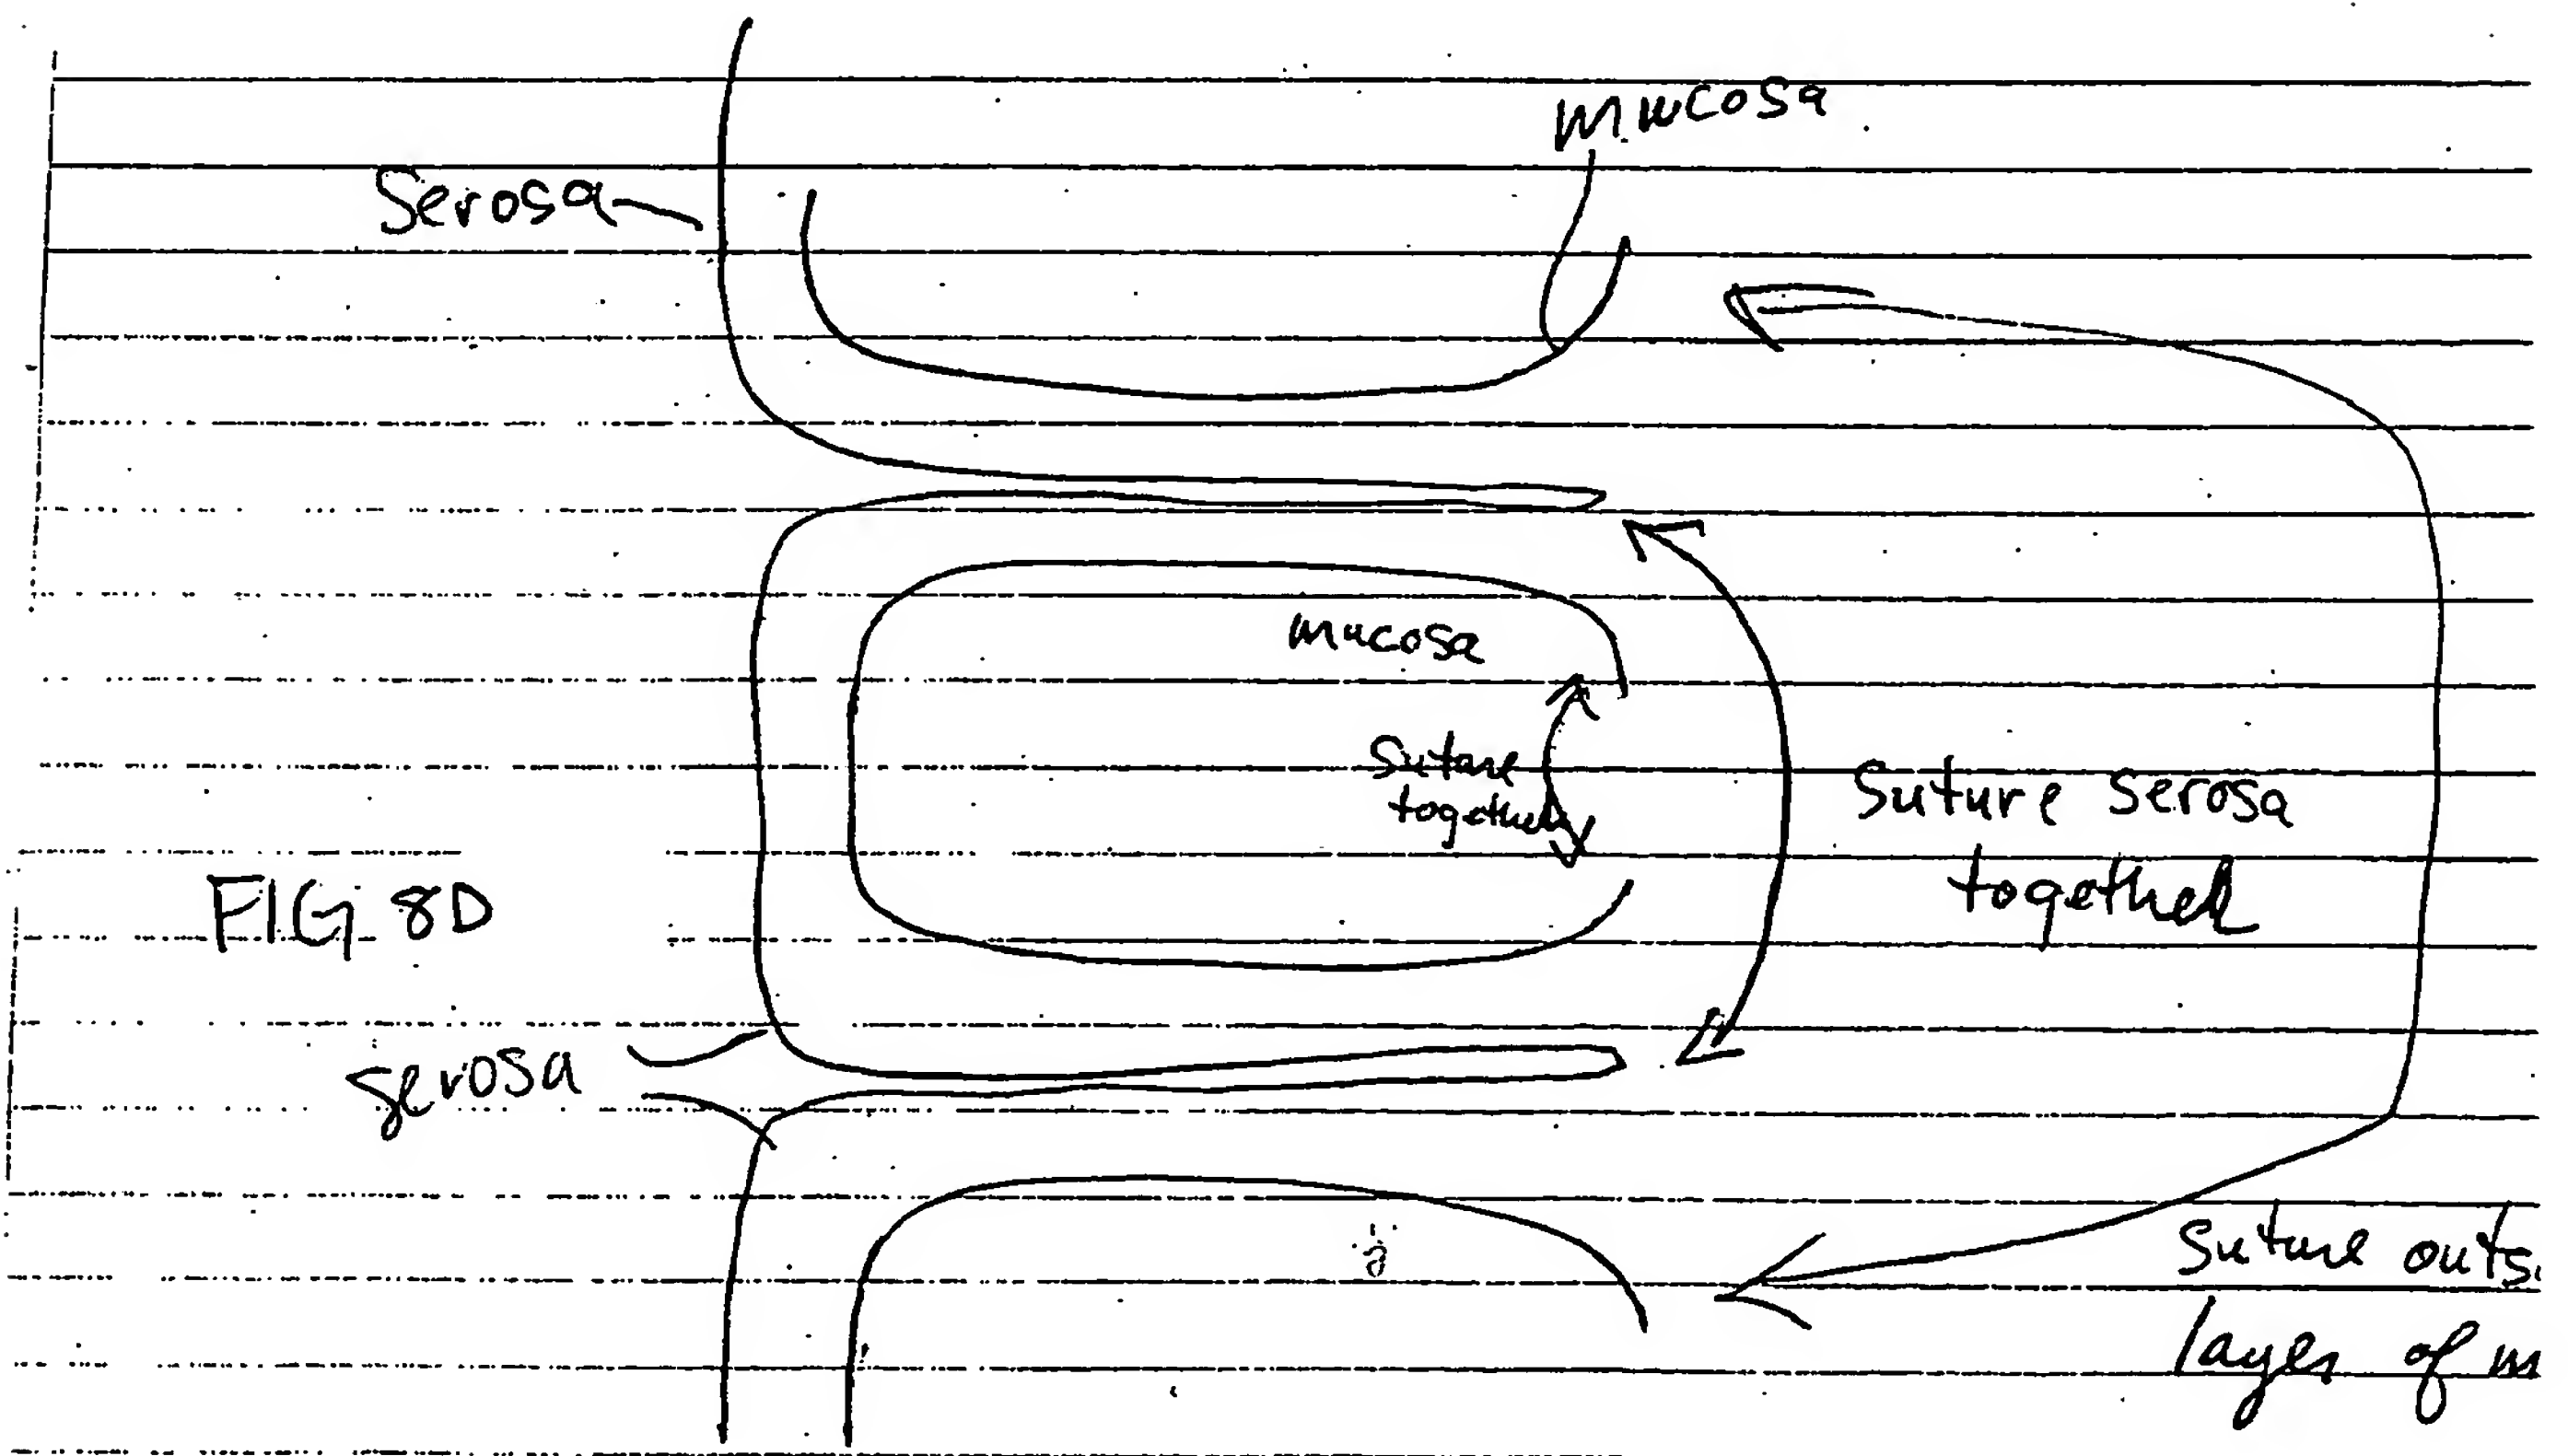 mucosa
Serosa
mucosa
Suture
together
Suture serosa
together
FIG 8D
serosa
Suture outs
layer of m